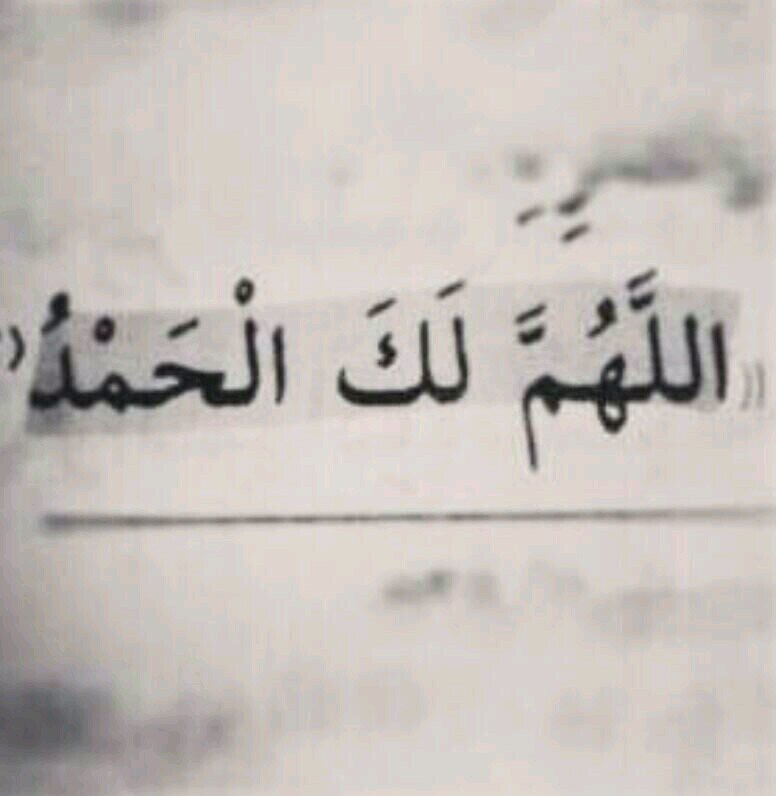 ((اللَّهُمَّ لَكَ الْحَمْدُ))